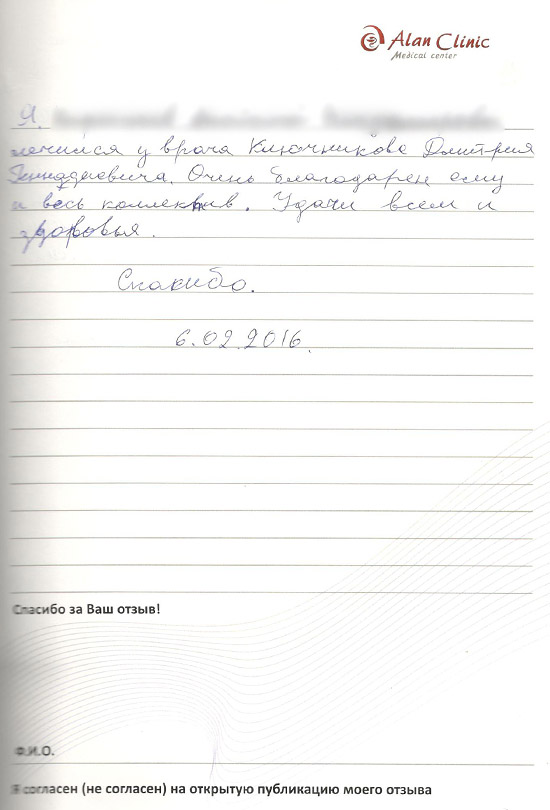 Alan Clinic
Medical center
Я,
лечился у врача Ключникова Дмитрия
Геннадиевича. Очень благодарен ему
и весь коллектив. Удачи всем и
здоровья.
Спасибо.
6.02.2016.
Спасибо за Ваш отзыв!
Ф.И.О.
Я согласен (не согласен) на открытую публикацию моего отзыва